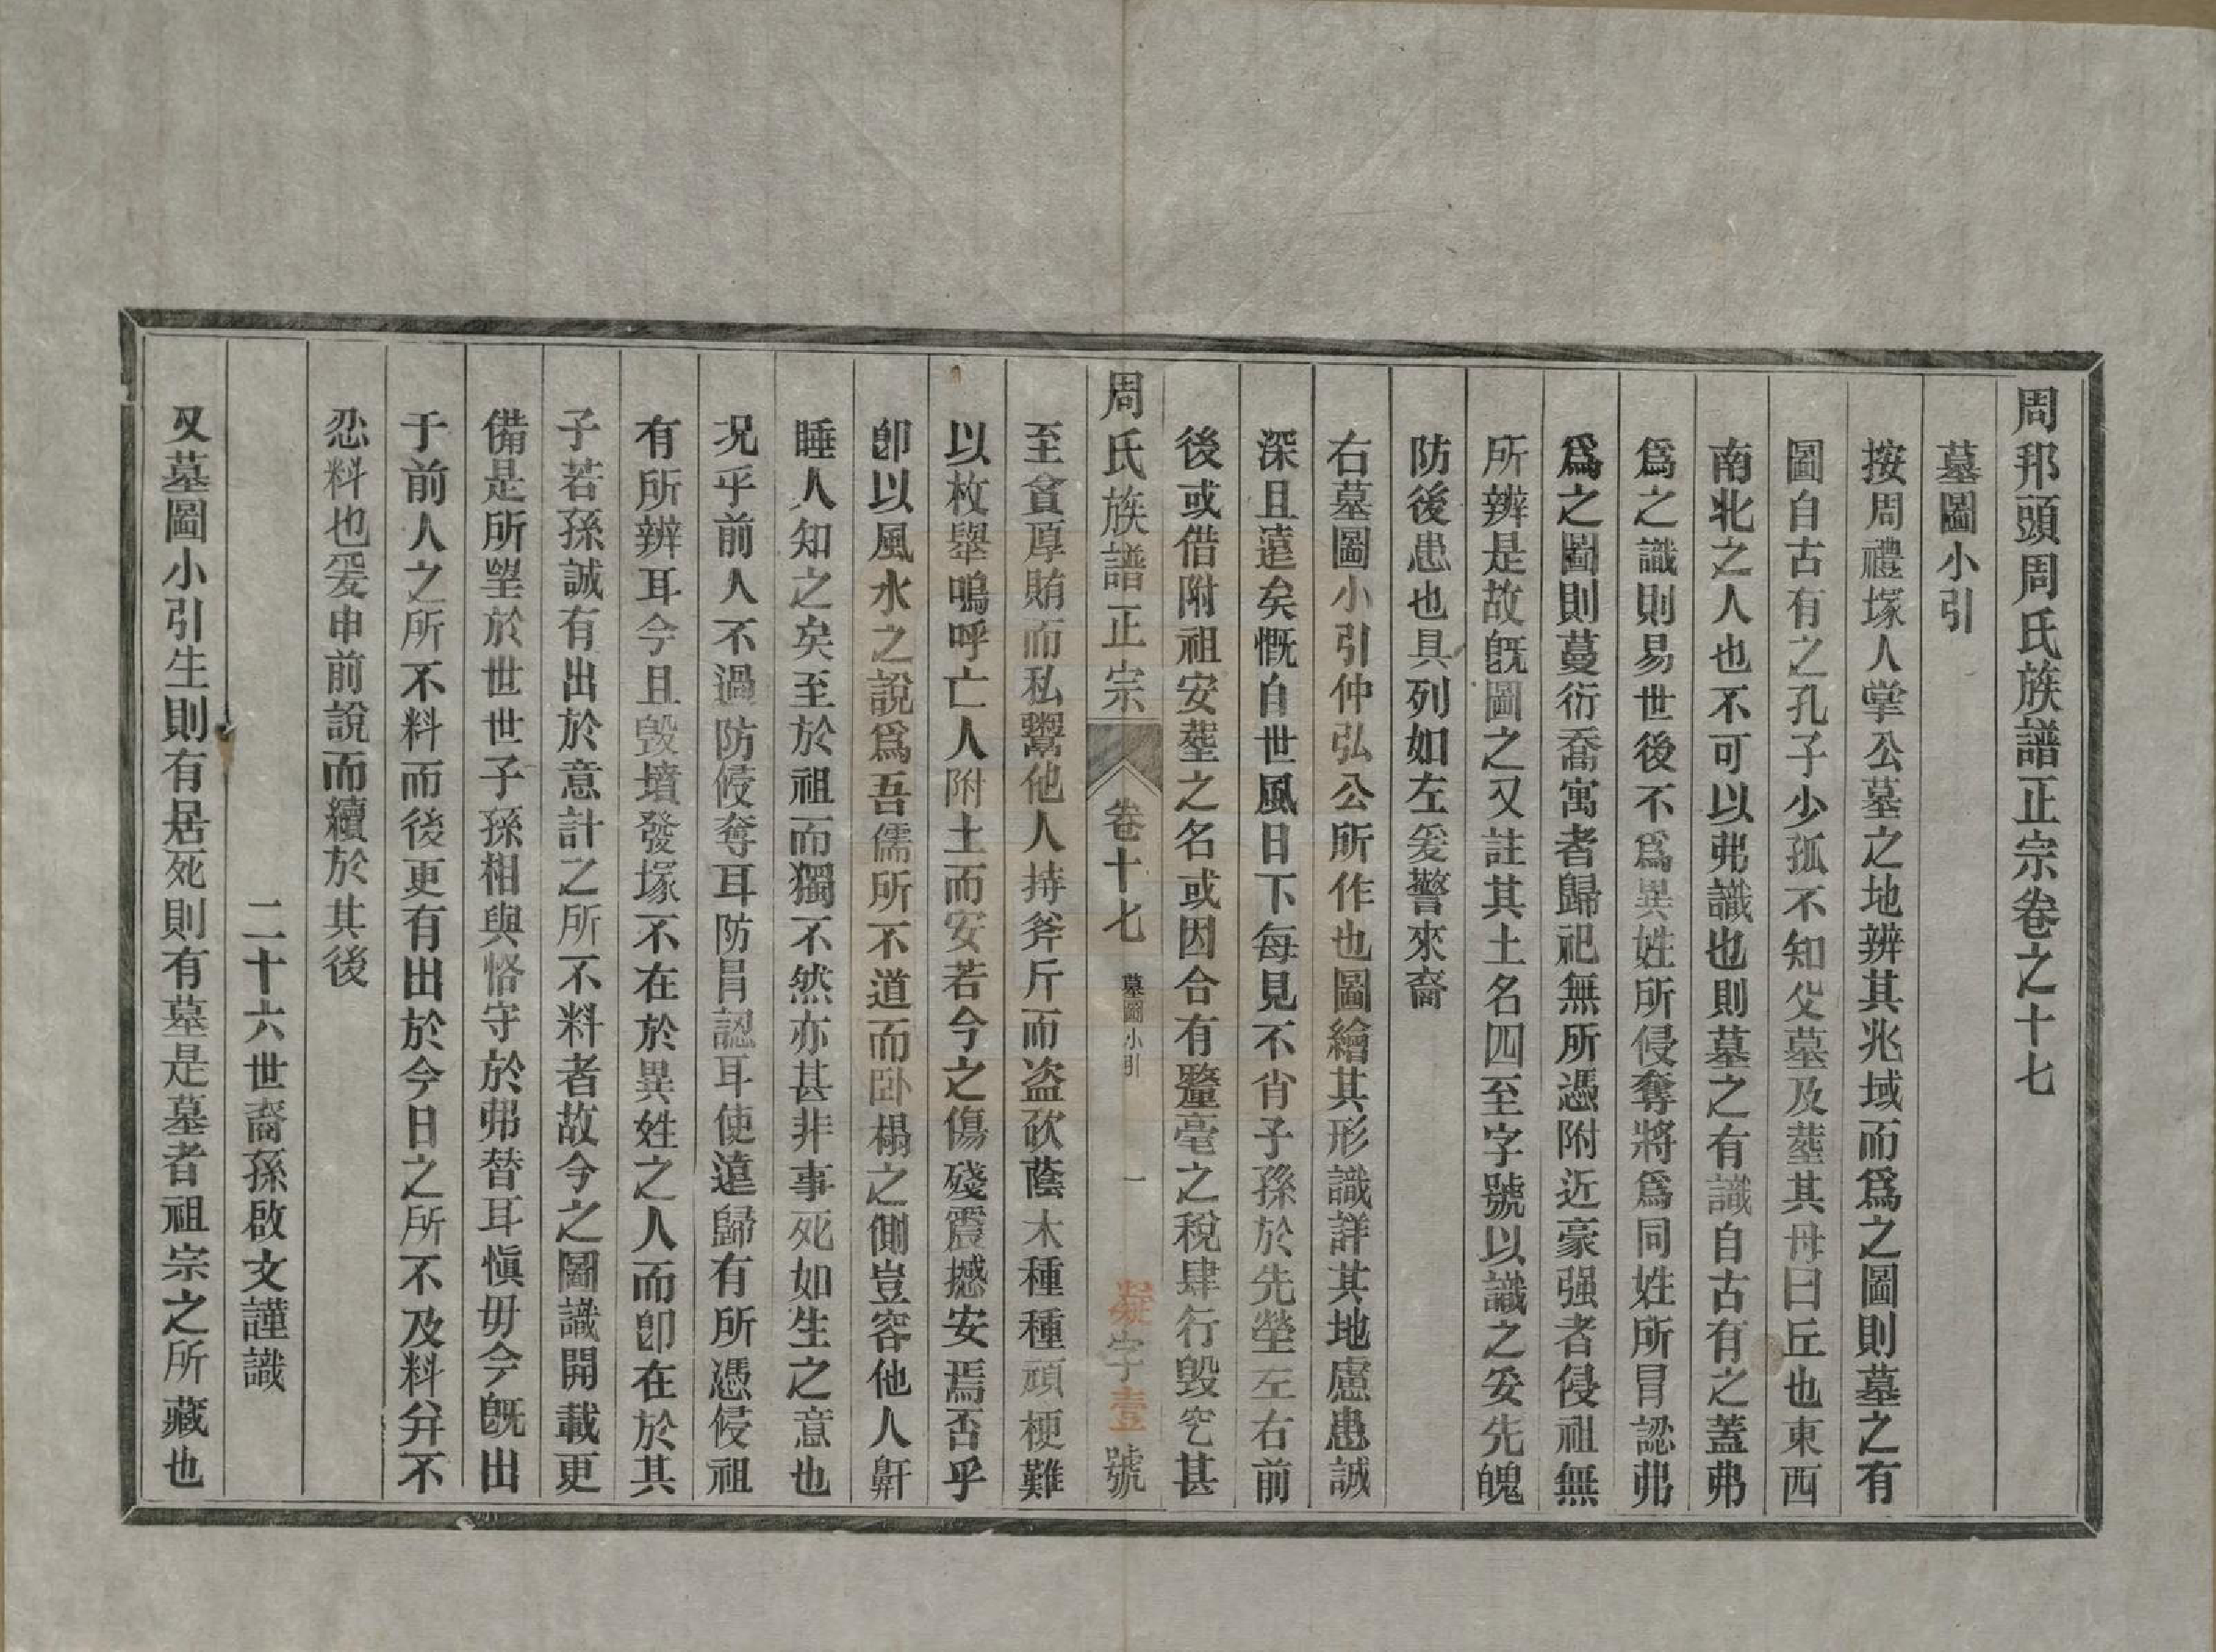 周邦頭周氏族譜正宗卷之十七
墓圖小引
按周禮塚人掌公墓之地辨其兆域而爲之圖則墓之有
圖自古有之孔子少孤不知父墓及塟其母曰丘也東西
南北之人也不可以弗識也則墓之有識自古有之蓋弗
爲之識則易世後不爲異姓所侵奪將爲同姓所冒認弗
爲之圖則蔓衍喬寓者歸祀無所憑附近豪强者侵祖無
所辨是故旣圖之又註其土名四至字號以識之妥先魄
防後患也具列如左爰警來裔
右墓圖小引仲弘公所作也圖繪其形識詳其地慮患誠
深且遠矣慨自世風日下每見不肖子孫於先塋左右前
後或借附祖安塟之名或因合有釐毫之稅肆行毀穵甚
至貪厚賄而私鬻他人持斧斤而盗砍蔭木種種頑梗難
以枚舉嗚呼亡人附土而安若今之傷殘震撼安焉否乎
卽以風水之說爲吾儒所不道而卧榻之側豈容他人鼾
睡人人知之矣至於祖而獨不然亦甚非事死如生之意也
况乎前人不過防侵奪耳防冒認耳使遠歸有所憑侵祖
有所辨耳今且毀墳發塚不在於異姓之人而卽在於其
子若孫誠有出於意計之所不料者故今之圖識開載更
備是所望於世世子孫相與恪守於弗替耳愼毋今旣出
于前人之所不料而後更有出於今日之所不及料幷不
忍料也爰申前說而續於其後
二十六世裔孫啟文謹識
又墓圖小引生則有居死則有墓是墓者祖宗之所藏也
周氏族譜正宗 卷十七 墓圖小引 一 字壹號